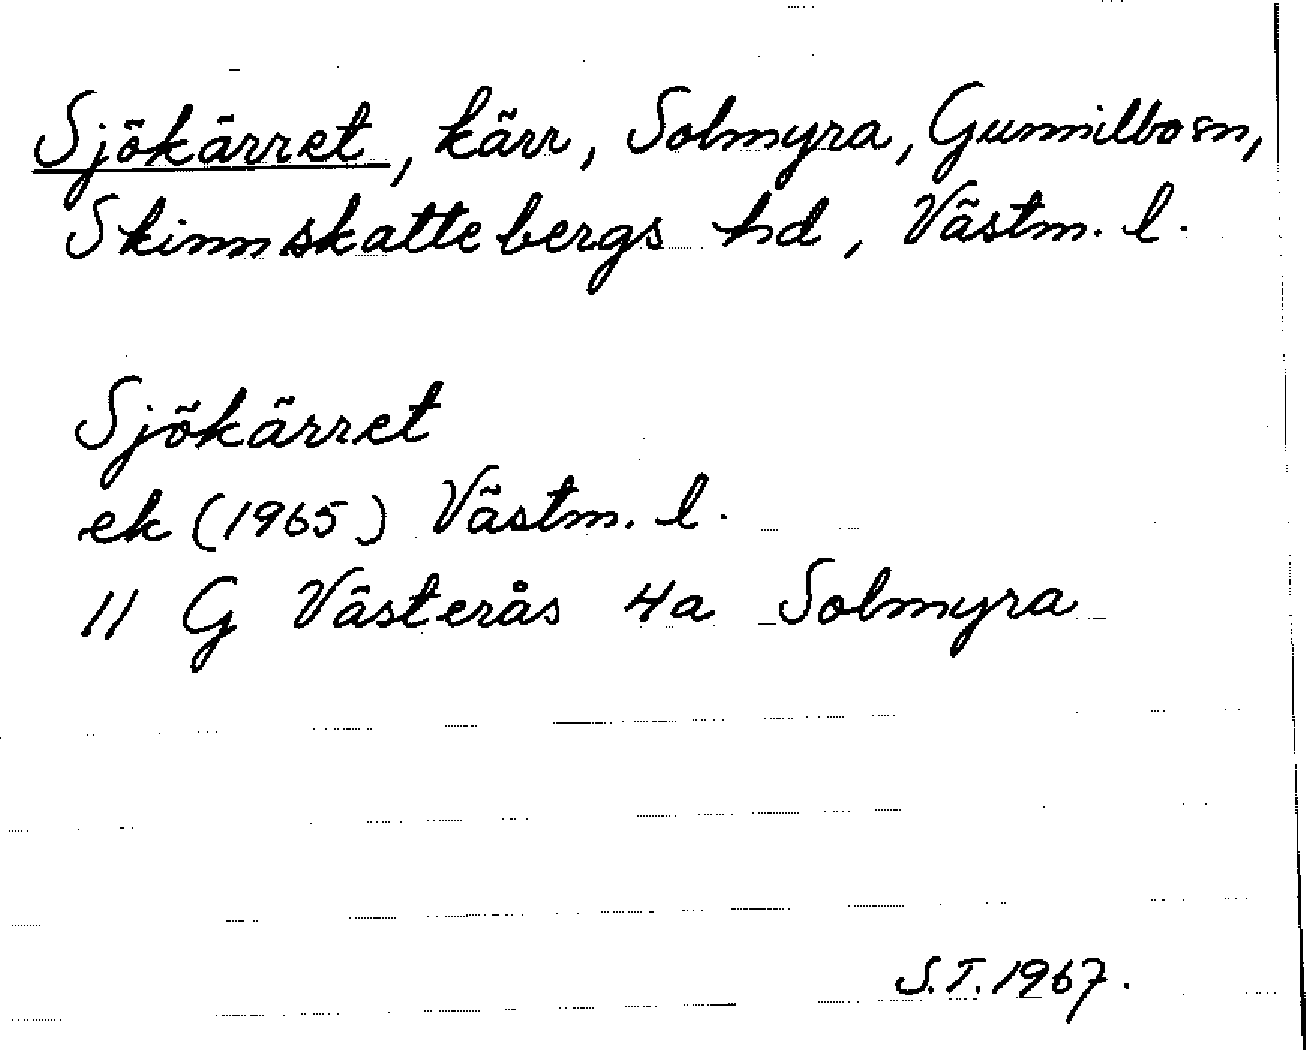 Sjökärret, kärr, Solmyra, Gunnilbo sn,
Skinnskattebergs hd, Västm. l.
Sjökärret
ek (1965) Västm. l.
11 G Västerås 4a Solmyra
S.T. 1967.